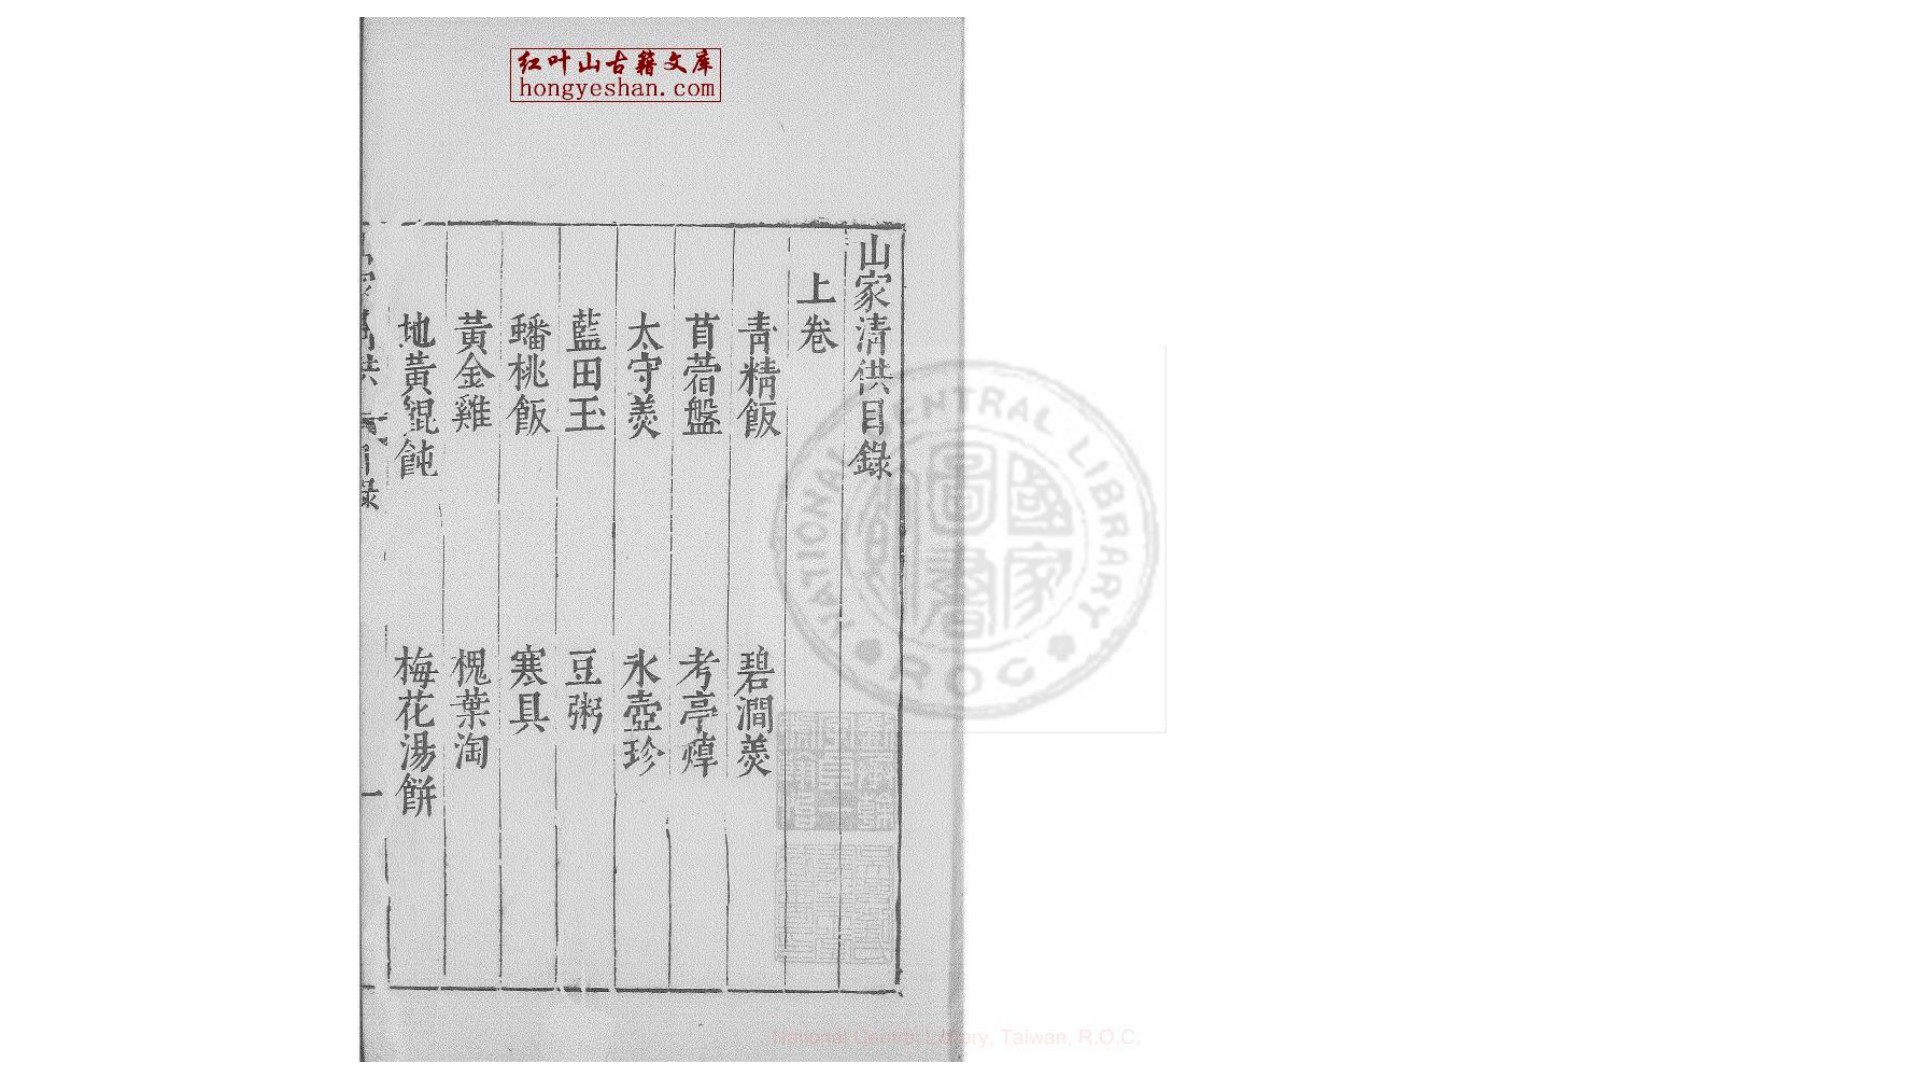 红叶山古籍文库
hongyeshan.com
山家清供目錄
上卷
青精飯 碧澗羹
苜蓿盤 考亭蔊
太守羹 氷壺珍
藍田玉 豆粥
蟠桃飯 寒具
黃金雞 槐葉淘
地黃餛飩 梅花湯餅
一
NATIONAL CENTRAL LIBRARY
R.O.C
國家圖書館
National Central Library, Taiwan, R.O.C.